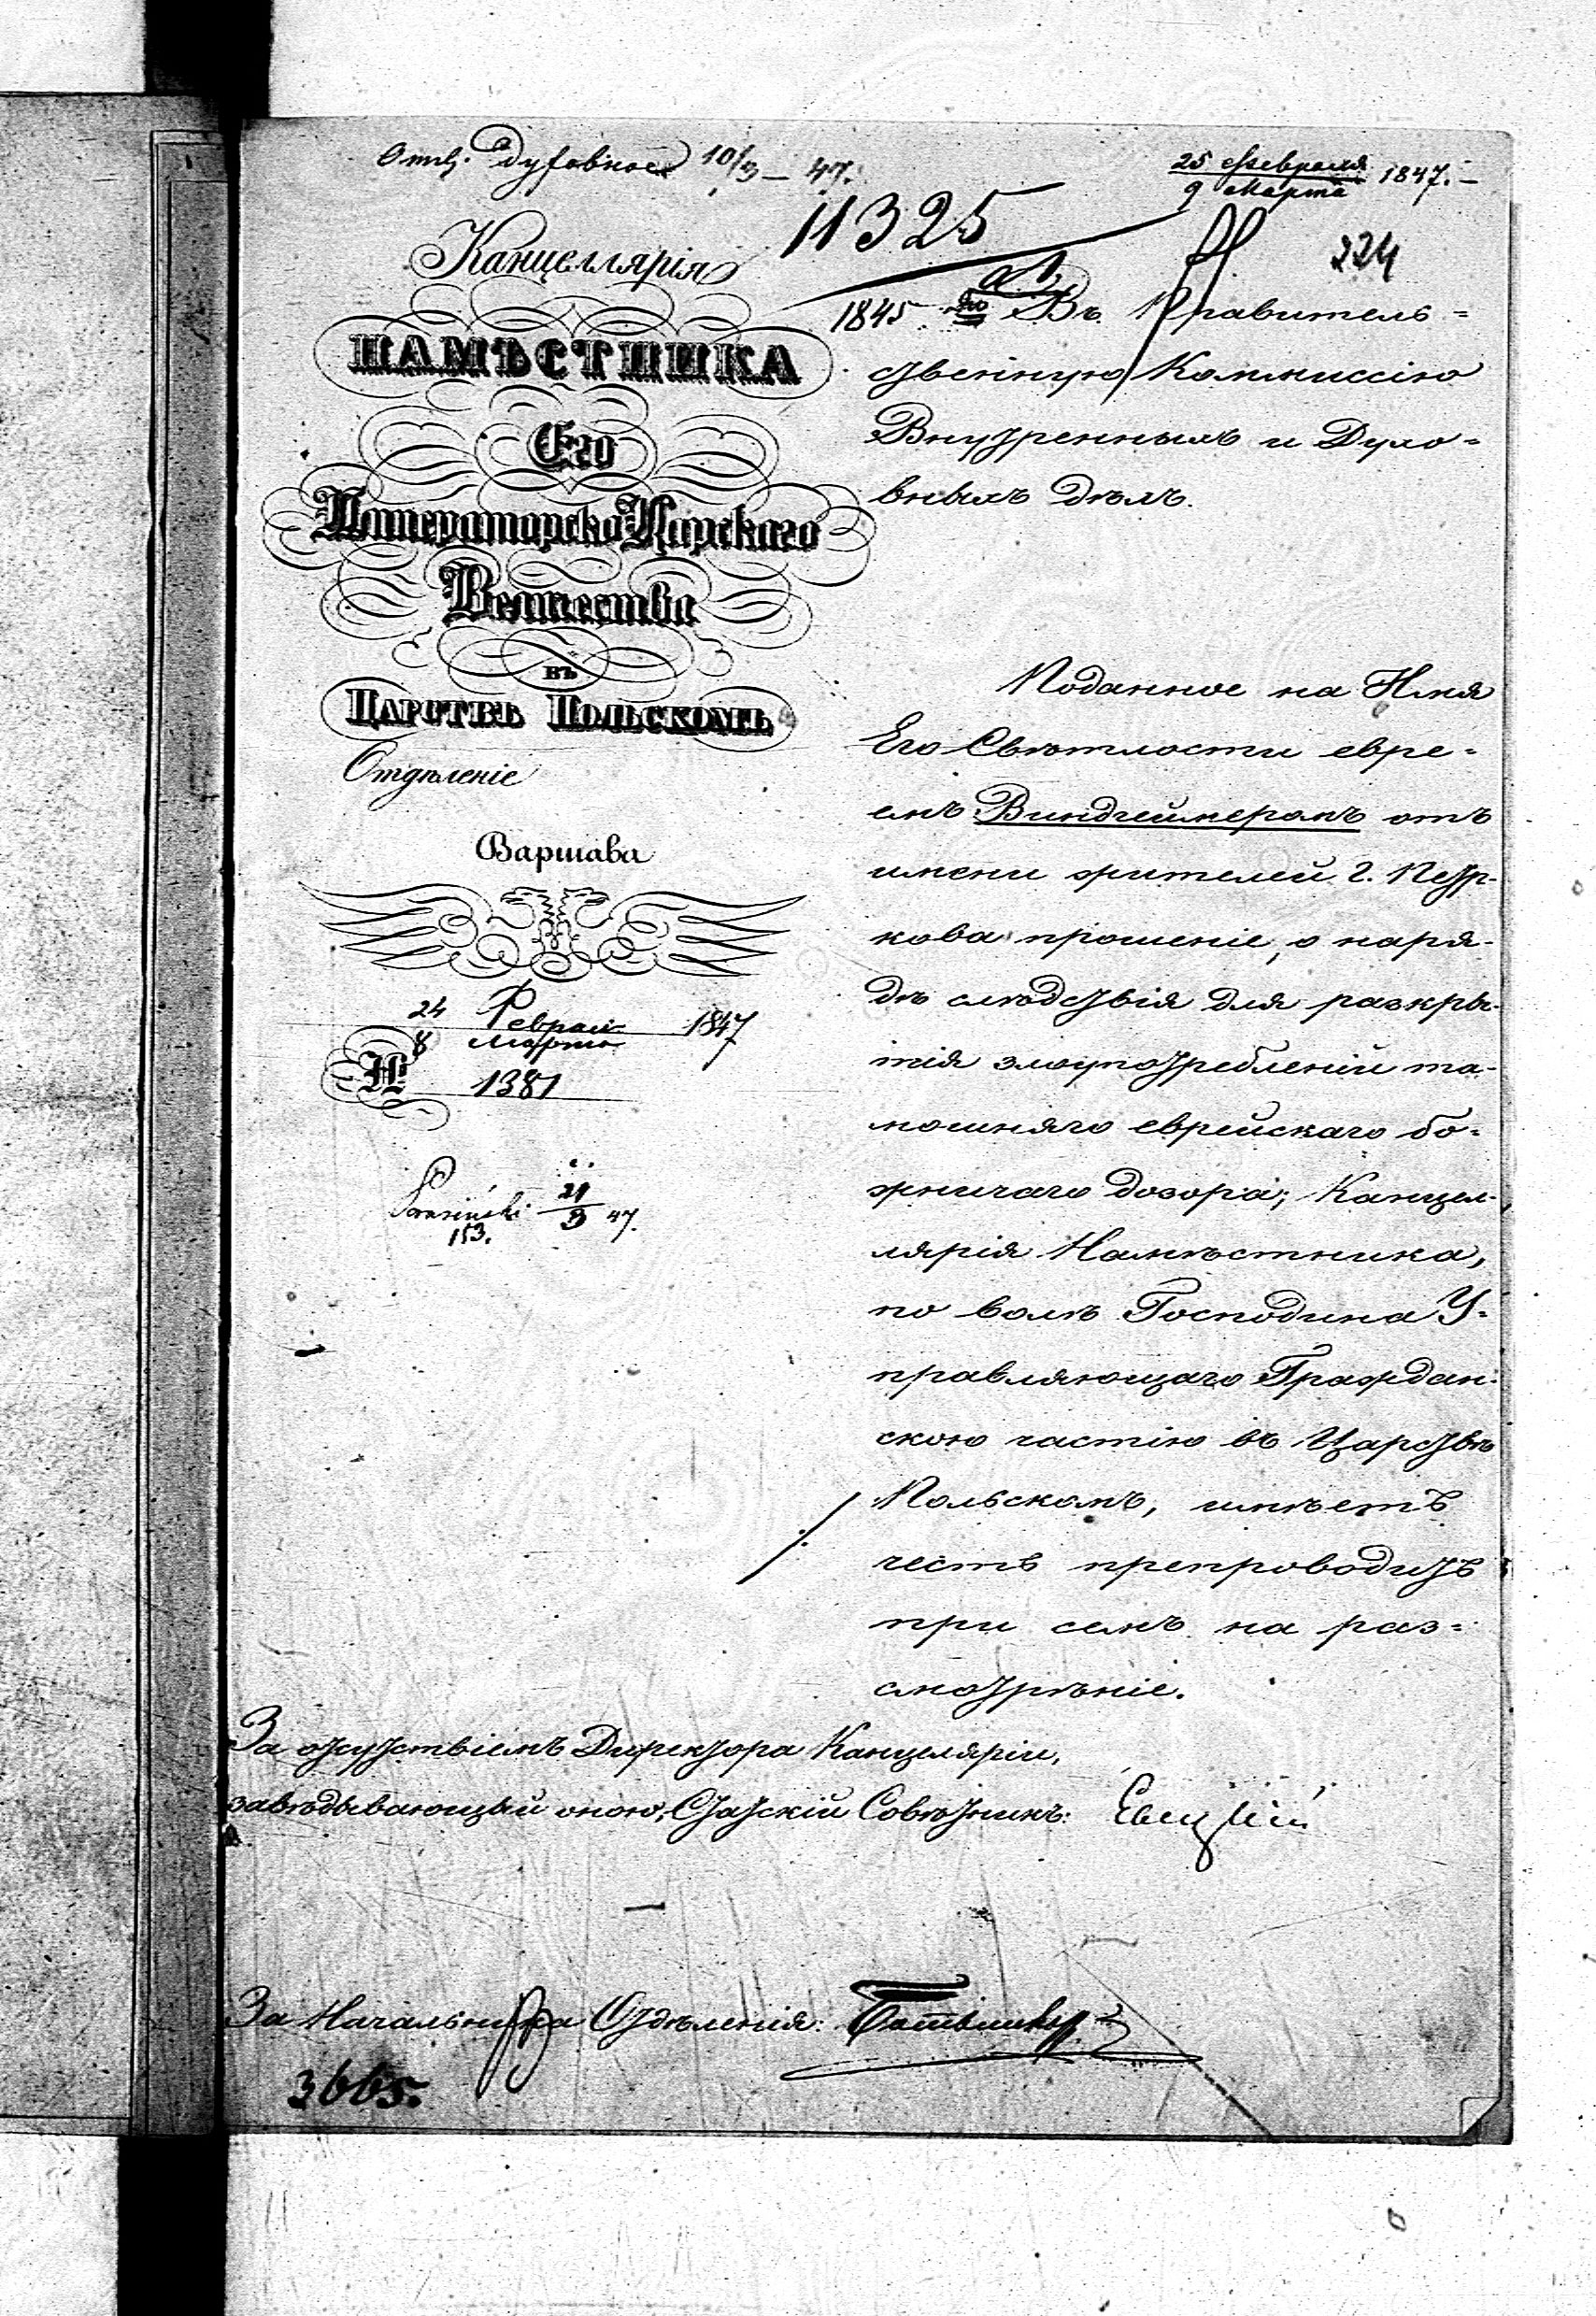 Отд. Духовное 10/3 – 47.
25 Февраля
9 Марта 1847. –
11325
224
1845
Канцеллярія
НАМѢСТНИКА
Его
Императорско Царскаго
Величества
въ
ЦАРСТВѢ ПОЛЬСКОМЪ
Отдѣленіе
Варшава
24 Февраля
8 Марта 1847
№ 1381
21
3 47.
153.
Въ Правитель=
ственную Коммиссію
Внутреннихъ и Духо=
вныхъ дѣлъ.
Поданное на Имя
Его Свѣтлости евре=
емъ Виндгеймеромъ отъ
имени жителей г. Петр-
кова прошеніе, о наря-
дѣ слѣдствія для разкры-
тія злоупотребленій та-
мошняго еврейскаго бо-
жничаго дозора; Канцел-
лярія Намѣстника,
по волѣ Господина У-
правляющаго Граждан-
скою частію въ Царствѣ
Польскомъ, имѣетъ
честь препроводить
при семъ на раз=
смотрѣніе.
За отсутствіемъ Директора Канцеляріи,
завѣдывающій оною, Статскій Совѣтникъ: Евецкій
За Начальника Отдѣленія:
3665.